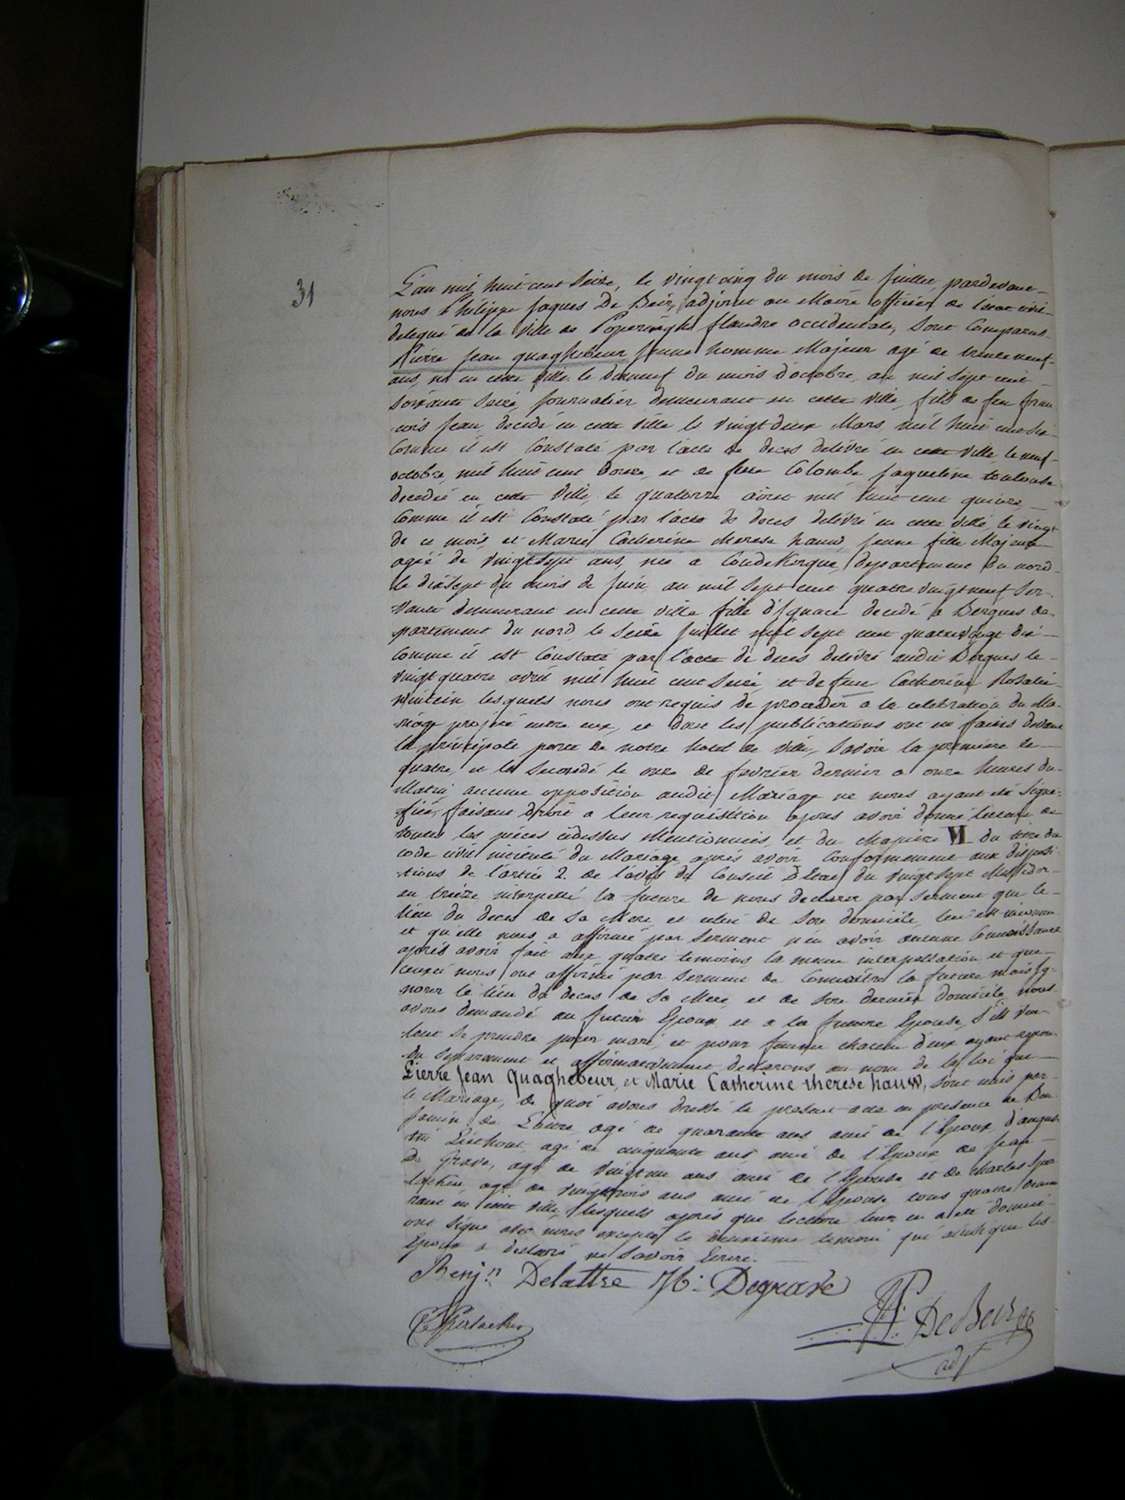 31
L'an mil huit cent seize, le vingt cinq du mois de Juillet, pardevant
nous Philippe Jaques De Beir, adjoint au Maire officier de l'état civil
delegué de la Ville de Poperinghe flandre occidentale, sont comparus
Pierre Jean quaghebeur jeune homme Majeur agé de trente neuf
ans, né en cette Ville le dixneuf du mois d'octobre, an mil sept cent
soixante seize journalier demeurant en cette ville, fils de feu fran
cois Jean, décédé en cette ville le vingt deux Mars mil huit cent six
comme il est constaté par l'acte de deces delivré en cette ville le neuf
octobre, mil huit cent douze, et de feue Colombe Jaqueline
decedée en cette Ville, le quatorze avril mil huit cent quinze
comme il est constaté par l'acte de deces delivré en cette ville, le vingt
de ce mois, et Marie Catherine therese hauw, jeune fille Majeure
agée de vingt sept ans, née a Coudekerque, departement du nord
le dixsept du mois de Juin, an mil sept cent quatre vingt neuf ser-
vante demeurant en cette ville fille d'Ignace decedé a Bergues de-
partement du nord le seize Juillet mil sept cent quatre vingt dix
comme il est constaté par l'acte de deces delivré audit Bergues le
vingt quatre avril mil huit cent seize et de feue Catherine Rosalie
lesquels nous ont requis de proceder a la celebration du Ma-
riage projeté entre eux, et dont les publications ont eu faites devant
la principale porte de notre hotel de ville, savoir la premiere le
quatre, et la seconde le onze de fevrier dernier a onze heures du
Matin aucune opposition audit Mariage ne nous ayant été signi-
fiée, faisant droit a leur requisition apres avoir donné lecture de
toutes les pièces cidessus Mentionnées, et du chapitre VI du titre du
code civil intitulé du Mariage après avoir conformement aux disposi-
tions de l'article 2 de l'avis du Conseil d'Etat du vingt sept Messidor
an treize interpellé la future de nous declarer par serment que le
lieu du deces de sa Mere et celui de son domicile lui est inconnu
et qu'elle nous a affirmé par serment n'en avoir aucune Connaissance
après avoir fait aux quatre temoins la meme interpellation et que
ceuxci nous ont affirmé par serment de connaitre la future mais ig-
norer le lieu du deces de sa Mere, et de son dernier domicile nous
avons demandé au futur Epoux et a la future Epouse, s'ils veu-
lent se prendre pour mari, et pour femme chacun d'eux ayant repon-
du séparement et affirmativement declarons au nom de la loi que
Pierre Jean Quaghebeur, et Marie Catherine therese hauw, sont unis par
le Mariage, de quoi avons dressé le present acte en presence de Ben
jamin De Lattre agé de quarante ans ami de l'Epoux, d'augus
tin agé de cinquante ans ami de l'Epoux de Jean
De Grave, agé de vingt un ans ami de l'Epouse et de charles
agé de vingt trois ans ami de l'Epouse tous quatre demeu
rant en cette Ville, lesquels après que lecture leur en a été donné
ont signé avec nous excepté le deuxieme temoin qui ainsi que les
Epoux a declaré ne savoir Ecrire.
Benjn Delattre Degrave
De Beir
adjt